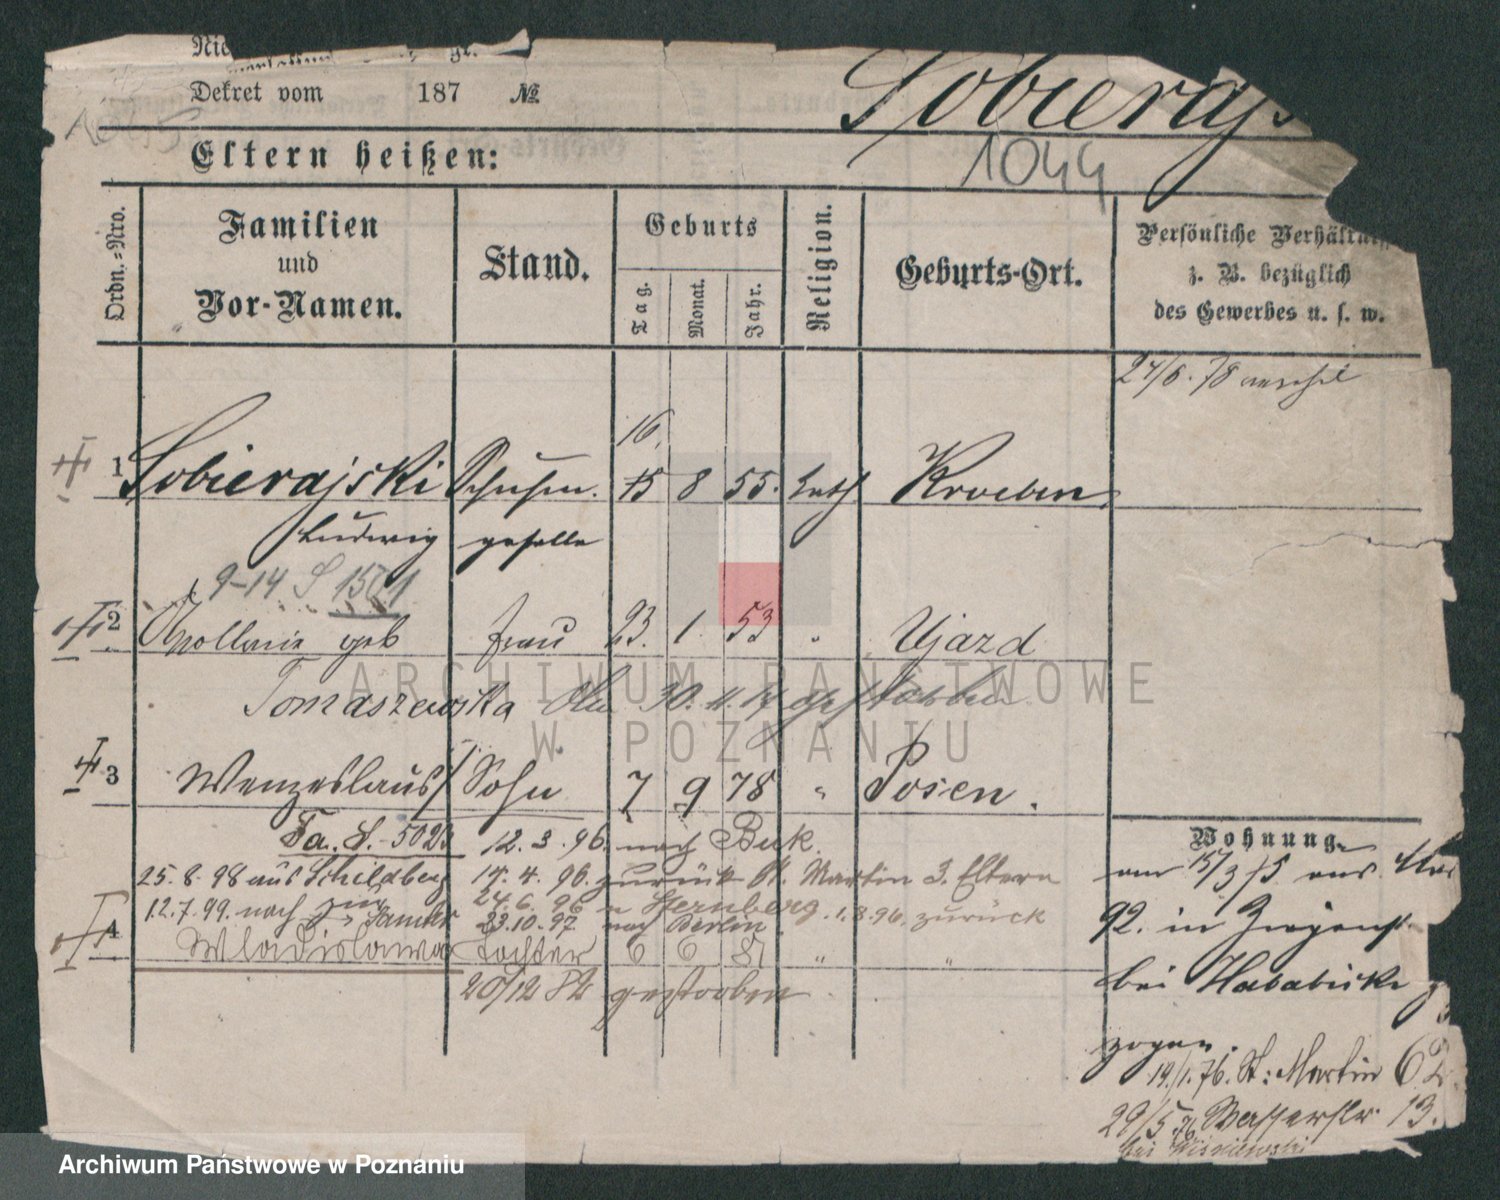 Dekret vom 187 №
Sobierajs
1045
Eltern heißen:
1044
Ordn.=Nro.
Familien
und
Vor-Namen.
Stand.
Geburts
Tag.
Monat.
Jahr.
Religion.
Geburts-Ort.
Persönliche Verhältnis
z. B. bezüglich
des Gewerbes u. s. w.
24/6. 78
16.
1 Sobierajski Schuhm. 15 8 55. kath Kroeben
Ludwig geselle
9-14 S 1501
2 Apollonie geb Frau 23. 1. 53 " Ujazd
Tomaszewska 30. 11. 17 gestorben
3 Wenzeslaus Sohn 7 9 78 " Posen.
12. 3. 96. nach Buk.
25. 8. 98 aus Schildberg 14. 4. 96. zurück St. Martin 3. Eltern
24. 6. 96 n Sternberg. 1. 8. 96. zurück
12. 7. 99. nach Samter 23. 10. 97 nach Berlin
4 Wladislawa Tochter 6 6 81 " "
20/12 82 gestorben
Wohnung
am 15/3 75 aus
92. in
bei Hababicke
zogen.
19/1. 76. St: Martin 62
29/5. 76 Wasserstr. 13.
bei Wisniewski
ARCHIWUM PAŃSTWOWE
W POZNANIU
Archiwum Państwowe w Poznaniu